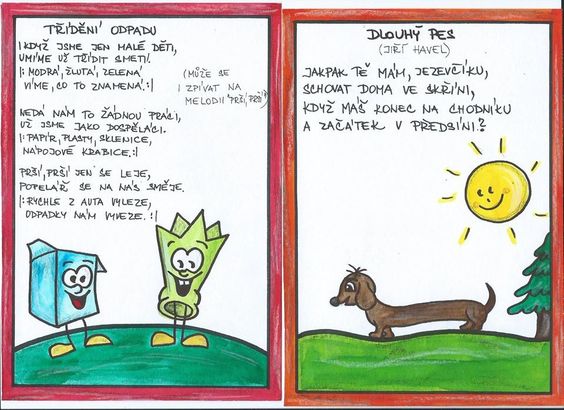 TŘÍDĚNÍ ODPADU
I KDYŽ JSME JEN MALÉ DĚTI,
UMÍME UŽ TŘÍDIT SMETÍ.
|: MODRÁ, ŽLUTÁ, ZELENÁ
VÍME, CO TO ZNAMENÁ. :|
(MŮŽE SE
I ZPÍVAT NA
MELODII "PRŠÍ, PRŠÍ")
NEDÁ NÁM TO ŽÁDNOU PRÁCI,
UŽ JSME JAKO DOSPĚLÁCI.
|: PAPÍR, PLASTY, SKLENICE,
NÁPOJOVÉ KRABICE. :|
PRŠÍ, PRŠÍ JEN SE LEJE,
POPELÁŘ SE NA NÁS SMĚJE.
|: RYCHLE Z AUTA VYLEZE,
ODPADKY NÁM VYVEZE. :|
DLOUHÝ PES
(JIŘÍ HAVEL)
JAKPAK TĚ MÁM, JEZEVČÍKU,
SCHOVAT DOMA VE SKŘÍNI,
KDYŽ MÁŠ KONEC NA CHODNÍKU
A ZAČÁTEK V PŘEDSÍNI?